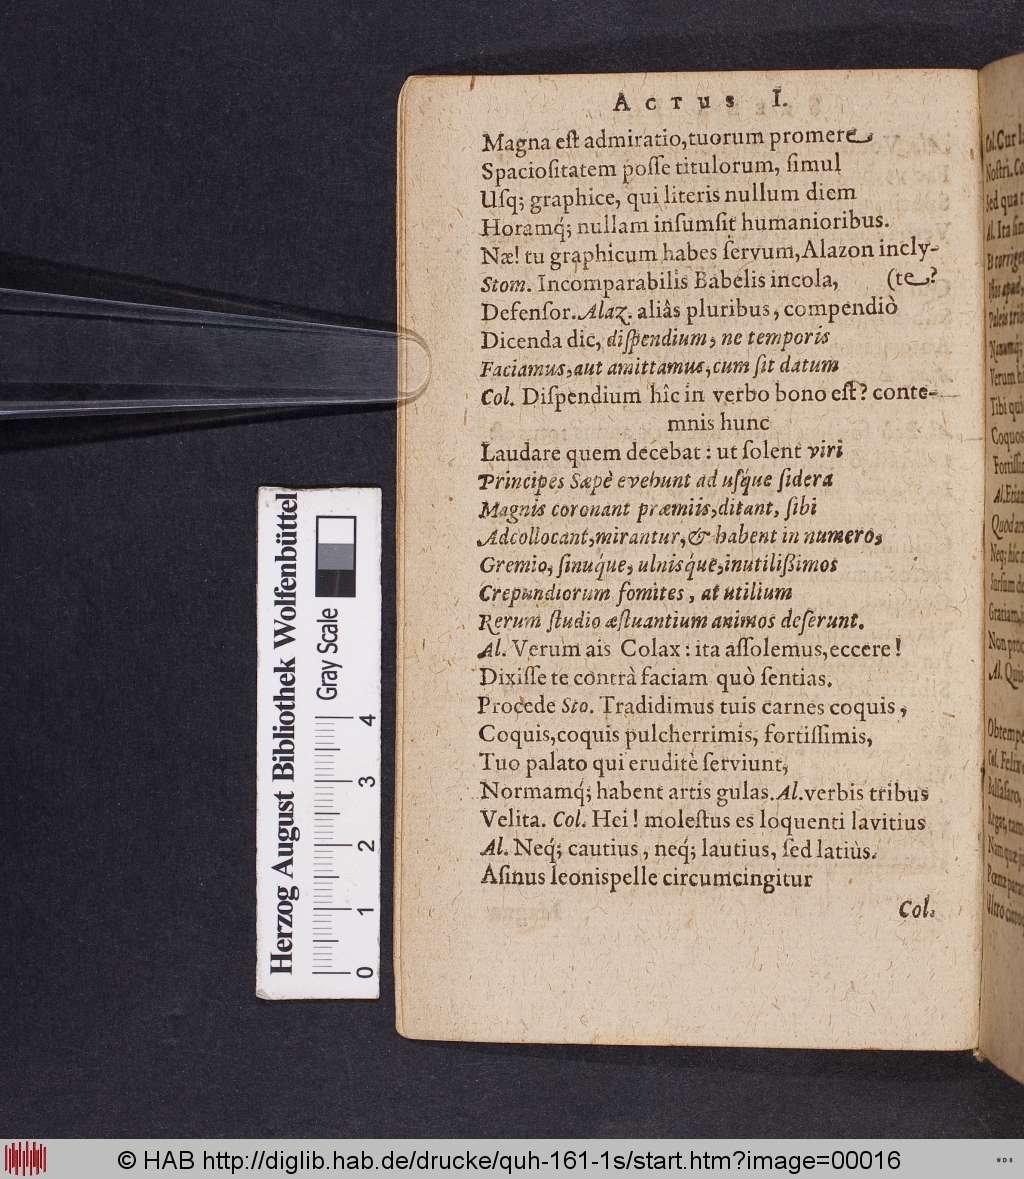 ACTUS I.
Magna eſt admiratio, tuorum promere
Spacioſitatem poſſe titulorum, ſimul
Uſq; graphice, qui literis nullum diem
Horamq́; nullam inſumſit humanioribus.
Næ! tu graphicum habes ſervum, Alazon incly-
Stom. Incomparabilis Babelis incola, (te?
Defenſor. Alaz. aliâs pluribus, compendiò
Dicenda dic, diſpendium, ne temporis
Faciamus, aut amittamus, cum ſit datum
Col. Diſpendium hîc in verbo bono eſt? conte-
mnis hunc
Laudare quem decebat: ut ſolent viri
Principes Sæpè evehunt ad uſq́ue ſidera
Magnis coronant præmiis, ditant, ſibi
Adcollocant, mirantur, & habent in numero,
Gremio, ſinuq́ue, ulnisq́ue, inutilißimos
Crepundiorum fomites, at utilium
Rerum ſtudio æſtuantium animos deſerunt.
Al. Verum ais Colax: ita aſſolemus, eccere!
Dixiſſe te contrà faciam quò ſentias.
Procede Sto. Tradidimus tuis carnes coquis,
Coquis, coquis pulcherrimis, fortiſſimis,
Tuo palato qui eruditè ſerviunt,
Normamq́; habent artis gulas. Al. verbis tribus
Velita. Col. Hei! moleſtus es loquenti lavitius
Al. Neq́; cautius, neq́; lautius, ſed latiùs.
Aſinus leonispelle circumcingitur
Col.
Herzog August Bibliothek Wolfenbüttel
Gray Scale
0 1 2 3 4
© HAB http://diglib.hab.de/drucke/quh-161-1s/start.htm?image=00016